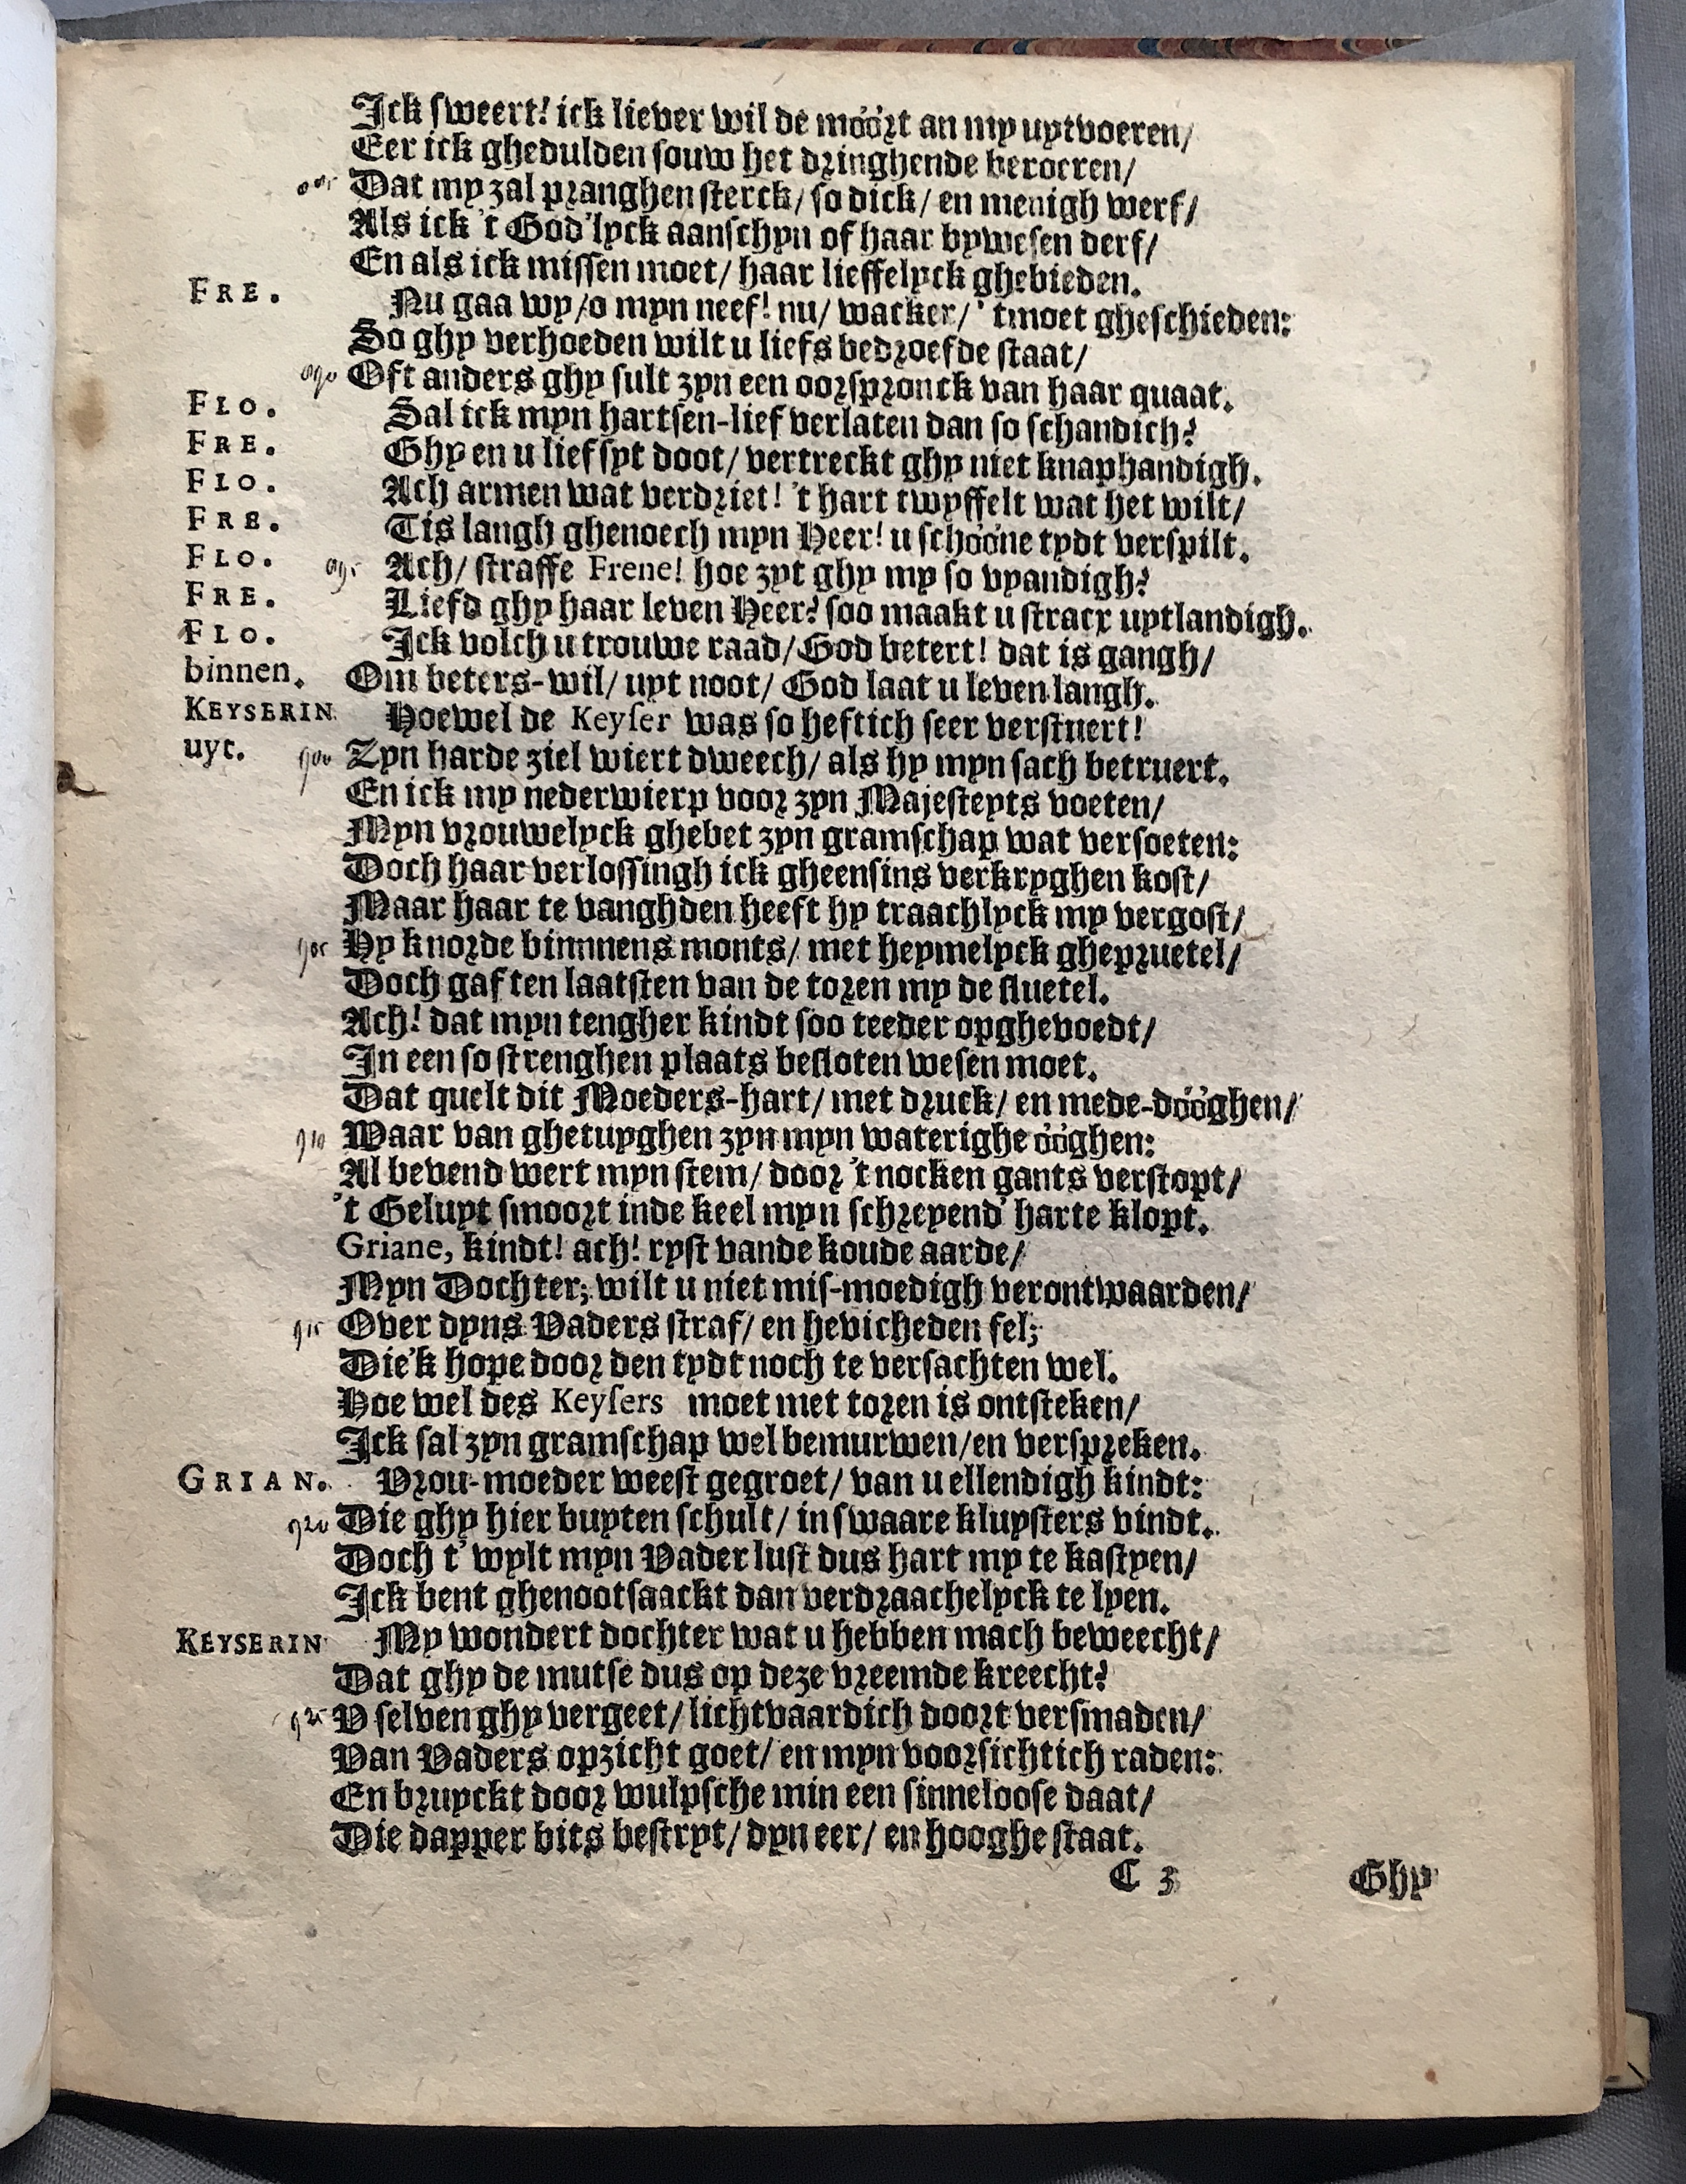 Ick sweert! ick liever wil de móórt an my uytvoeren/
Eer ick ghedulden souw het dringhende beroeren/
885 Dat my zal pranghen sterck/ so dick/ en menigh werf/
Als ick 't God'lyck aanschyn of haar bywesen derf/
En als ick missen moet/ haar lieffelyck ghebieden.
FRE. Nu gaa wy/o myn neef! nu/ wacker/ 'tmoet gheschieden:
So ghy verhoeden wilt u liefs bedroefde staat/
890 Oft anders ghy sult zyn een oorspronck van haar quaat.
FLO. Sal ick myn hartsen-lief verlaten dan so schandich?
FRE. Ghy en u lief syt doot/ vertreckt ghy niet knaphandigh.
FLO. Ach armen wat verdriet! 't hart twyffelt wat het wilt/
FRE. Tis langh ghenoech myn Heer! u schóóne tydt verspilt.
FLO. 895 Ach/ straffe Frene! hoe zyt ghy my so vyandigh?
FRE. Liefd ghy haar leven Heer? soo maakt u stracx uytlandigh.
FLO. Ick volch u trouwe raad/ God betert! dat is gangh/
binnen. Om beters-wil/ uyt noot/ God laat u leven langh.
KEYSERIN. Hoewel de Keyser was so heftich seer verstuert!
uyt. 900 Zyn harde ziel wiert dweech/ als hy myn sach betruert.
En ick my nederwierp voor zyn Majesteyts voeten/
Myn vrouwelyck ghebet zyn gramschap wat versoeten:
Doch haar verlossingh ick gheensins verkryghen kost/
Maar haar te vanghden heeft hy traachlyck my vergost/
905 Hy knorde binnnens monts/ met heymelyck ghepruetel/
Doch gaf ten laatsten van de toren my de sluetel.
Ach! dat myn tengher kindt soo teeder opghevoedt/
In een so strenghen plaats besloten wesen moet.
Dat quelt dit Moeders-hart/ met druck/ en mede-dóóghen/
910 Waar van ghetuyghen zyn myn waterighe óóghen:
Al bevend wert myn stem/ door 't nocken gants verstopt/
't Geluyt smoort inde keel myn schreyend' harte klopt.
Griane, kindt! ach! ryst vande koude aarde/
Myn Dochter; wilt u niet mis-moedigh verontwaarden/
915 Over dyns Vaders straf/ en hevicheden fel;
Die'k hope door den tydt noch te versachten wel.
Hoe wel des Keysers moet met toren is ontsteken/
Ick sal zyn gramschap wel bemurwen/en verspreken.
GRIAN. Vrou-moeder weest gegroet/ van u ellendigh kindt:
920 Die ghy hier buyten schult/ in swaare kluysters vindt.
Doch t' wylt myn Vader lust dus hart my te kastyen/
Ick bent ghenootsaackt dan verdraachelyck te lyen.
KEYSERIN My wondert dochter wat u hebben mach beweecht/
Dat ghy de mutse dus op deze vreemde kreecht?
925 V selven ghy vergeet/ lichtvaardich doort versmaden/
Van Vaders opzicht goet/ en myn voorsichtich raden:
En bruyckt door wulpsche min een sinneloose daat/
Die dapper bits bestryt/ dyn eer/ en hooghe staat.
C 3 Ghy